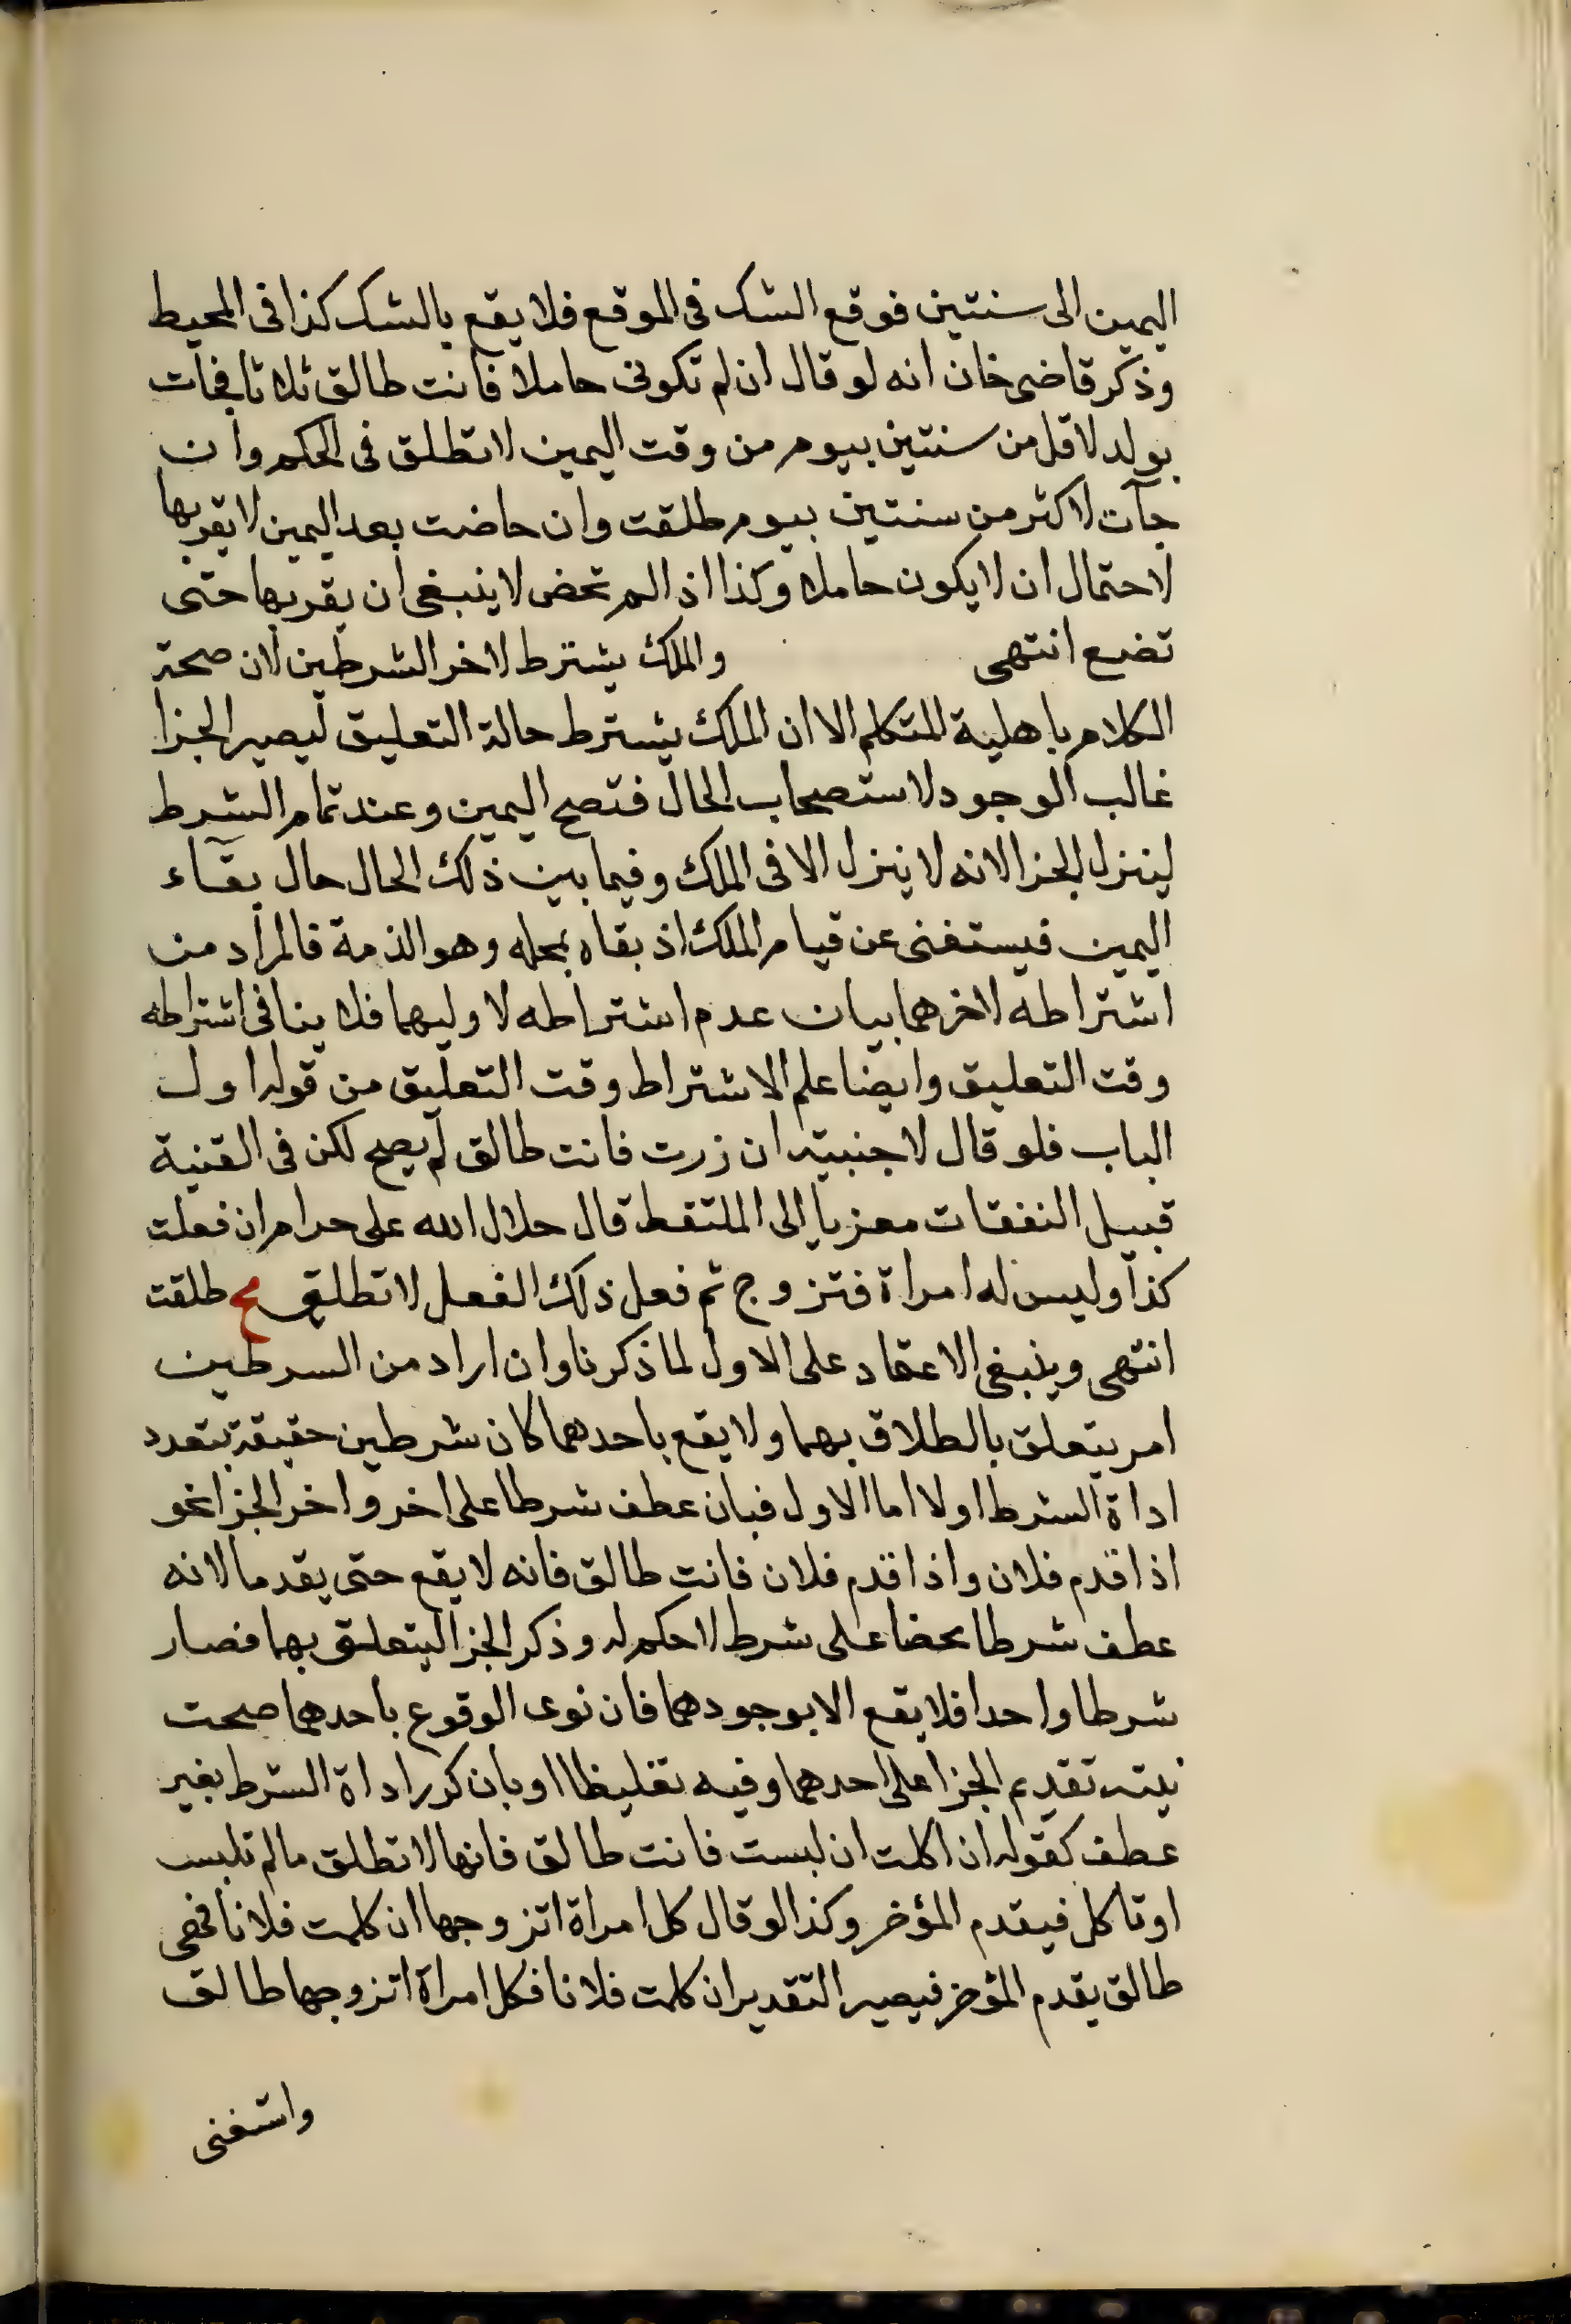 اليمين الى سنتين فوقع الشك في الموقع فلا يقع بالشك كذا في المحيط
وذكر قاضى خان انه لو قال ان لم تكونى حاملا فانت طالق ثلاثا فجات
بولد لاقل من سنتين بيوم من وقت اليمين لا تطلق في الحكم وان
جآت لاكثر من سنتين بيوم طلقت وان حاضت بعد اليمين لا يقربها
لاحتمال ان لا يكون حاملا وكذا اذا لم تحض لا ينبغى ان يقربها حتى
تضع انتهى والملك يشترط لاخر الشرطين لان صحة
الكلام باهلية المتكلم الا ان الملك يشترط حالة التعليق ليصير الجزا
غالب الوجود لاستصحاب الحال فتصح اليمين وعند تمام الشرط
لينزل الجزا لانه لا ينزل الا في الملك وفيما بين ذلك الحال حال بقآء
اليمين فيستغنى عن قيام الملك اذ بقاه بمحله وهو الذمة فالمراد من
اشتراطه لاخرهما بيان عدم اشتراطه لاوليهما فلا ينافى اشتراطه
وقت التعليق وايضا علم الاشتراط وقت التعليق من قوله اول
الباب فلو قال لاجنبية ان زرت فانت طالق لم يصح لكن في القنية
قبيل النفقات معزيا الى الملتقط قال حلال الله على حرام ان فعلت
كذا وليس له امراة فتزوج ثم فعل ذلك الفعل لا تطلق مح طلقت
انتهى وينبغى الاعتماد على الاول لما ذكرنا وان اراد من السرطين
امر يتعلق بالطلاق بهما ولا يقع باحدهما كان شرطين حقيقة بتعدد
اداة الشرط اولا اما الاول فبان عطف شرطا على اخر واخر الجزا نحو
اذا قدم فلان واذا قدم فلان فانت طالق فانه لا يقع حتى يقدما لانه
عطف شرطا محضا على شرط لا حكم له وذكر الجزا ليتعلق بهما فصار
شرطا واحدا فلا يقع الا بوجودهما فان نوى الوقوع باحدهما صحت
نيته تقديم الجزا على احدهما وفيه تغليظا او بان كرر اداة الشرط بغير
عطف كقوله ان اكلت ان لبست فانت طالق فانها لا تطلق مالم تلبس
اوتا كل فيقدم المؤخر وكذا لو قال كل امراة اتزوجها ان كلمت فلانا فهى
طالق يقدم المؤخر فيصير التقدير ان كلمت فلانا فكل امراة اتزوجها طالق
واستغنى